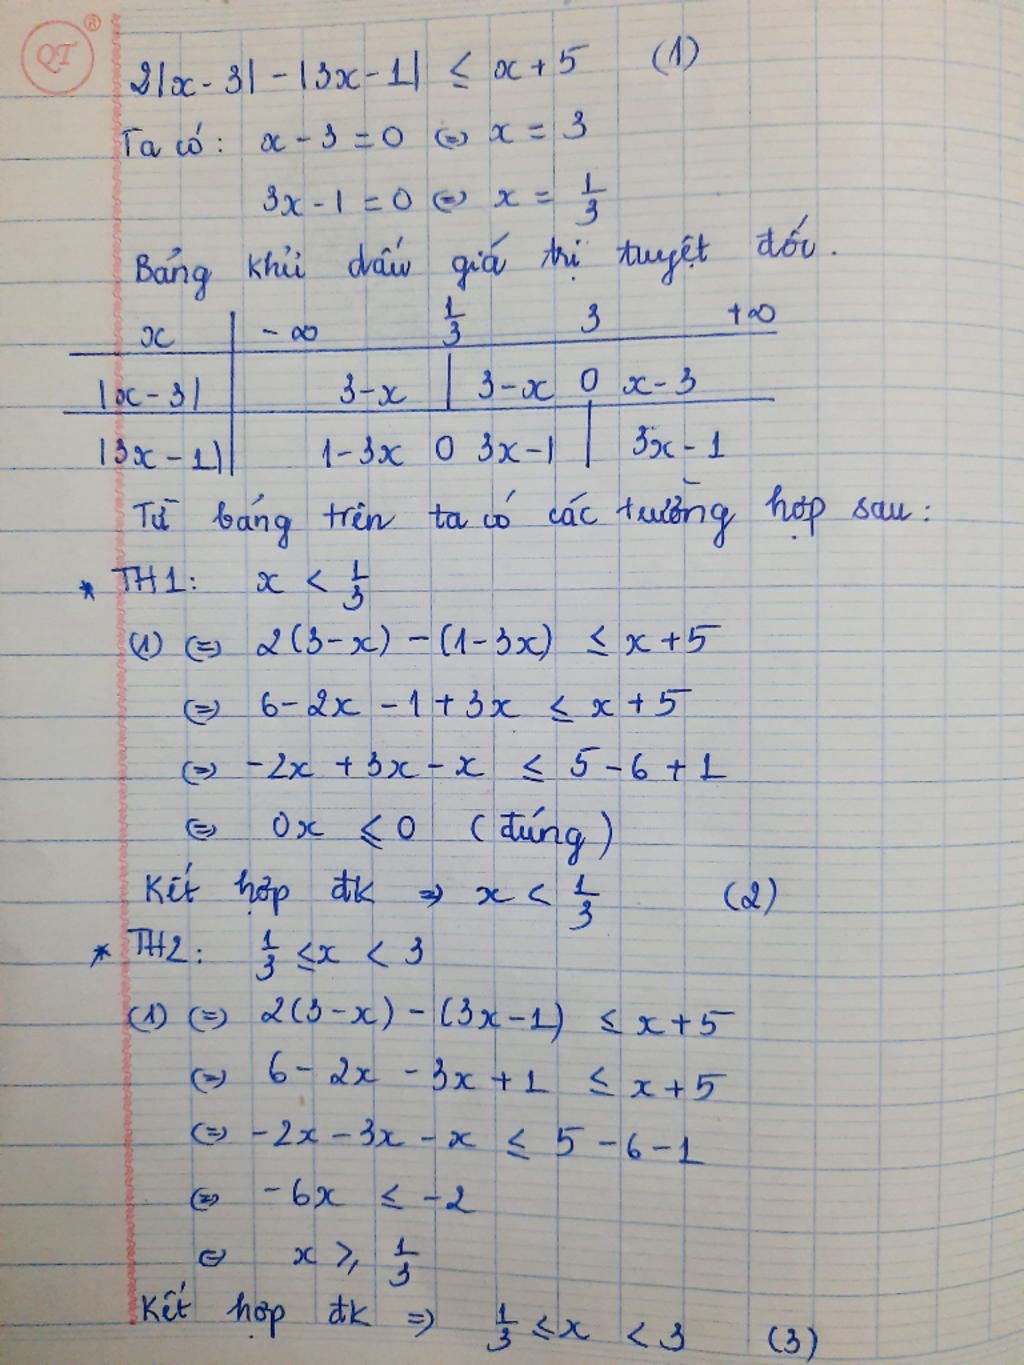 QT ®
2|x - 3| - |3x - 1| ≤ x + 5 (1)
Ta có: x - 3 = 0 ⇔ x = 3
3x - 1 = 0 ⇔ x = 1/3
Bảng khủi dấu giá trị tuyệt đối.
x | -∞ 1/3 3 +∞
|x - 3| | 3-x | 3-x 0 x-3
|3x - 1| | 1-3x 0 3x-1 | 3x - 1
Từ bảng trên ta có các trường hợp sau:
* TH1: x < 1/3
(1) ⇔ 2(3-x) - (1-3x) ≤ x+5
⇔ 6 - 2x - 1 + 3x ≤ x + 5
⇔ -2x + 3x - x ≤ 5 - 6 + 1
⇔ 0x ≤ 0 (đúng)
Kết hợp đk ⇒ x < 1/3 (2)
* TH2: 1/3 ≤ x < 3
(1) ⇔ 2(3-x) - (3x-1) ≤ x+5
⇔ 6 - 2x - 3x + 1 ≤ x + 5
⇔ -2x - 3x - x ≤ 5 - 6 - 1
⇔ -6x ≤ -2
⇔ x ≥ 1/3
Kết hợp đk ⇒ 1/3 ≤ x < 3 (3)